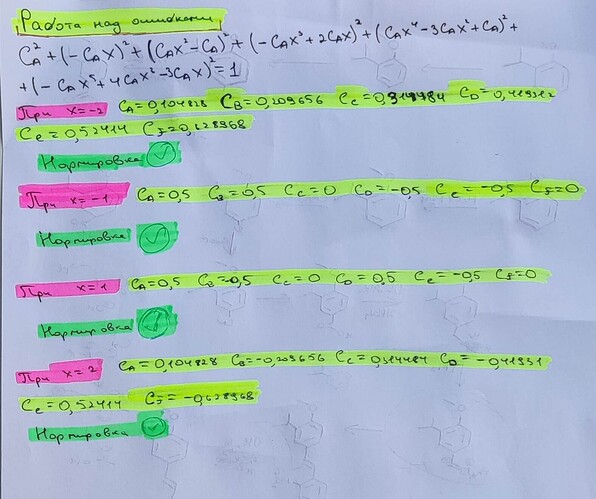 Работа над ошибками
C_A^2 + (-C_A X)^2 + (C_A X^2 - C_A)^2 + (-C_A X^3 + 2C_A X)^2 + (C_A X^4 - 3C_A X^2 + C_A)^2 +
+ (-C_A X^5 + 4C_A X^3 - 3C_A X)^2 = 1
При x=-2 C_A=0,104828 C_B=0,209656 C_C=0,314484 C_D=0,419312
C_E=0,52414 C_F=0,628968
Нормировка ✓
При x=-1 C_A=0,5 C_B=0,5 C_C=0 C_D=-0,5 C_E=-0,5 C_F=0
Нормировка ✓
При x=1 C_A=0,5 C_B=-0,5 C_C=0 C_D=0,5 C_E=-0,5 C_F=0
Нормировка ✓
При x=2 C_A=0,104828 C_B=-0,209656 C_C=0,314484 C_D=-0,41931
C_E=0,52414 C_F=-0,628968
Нормировка ✓